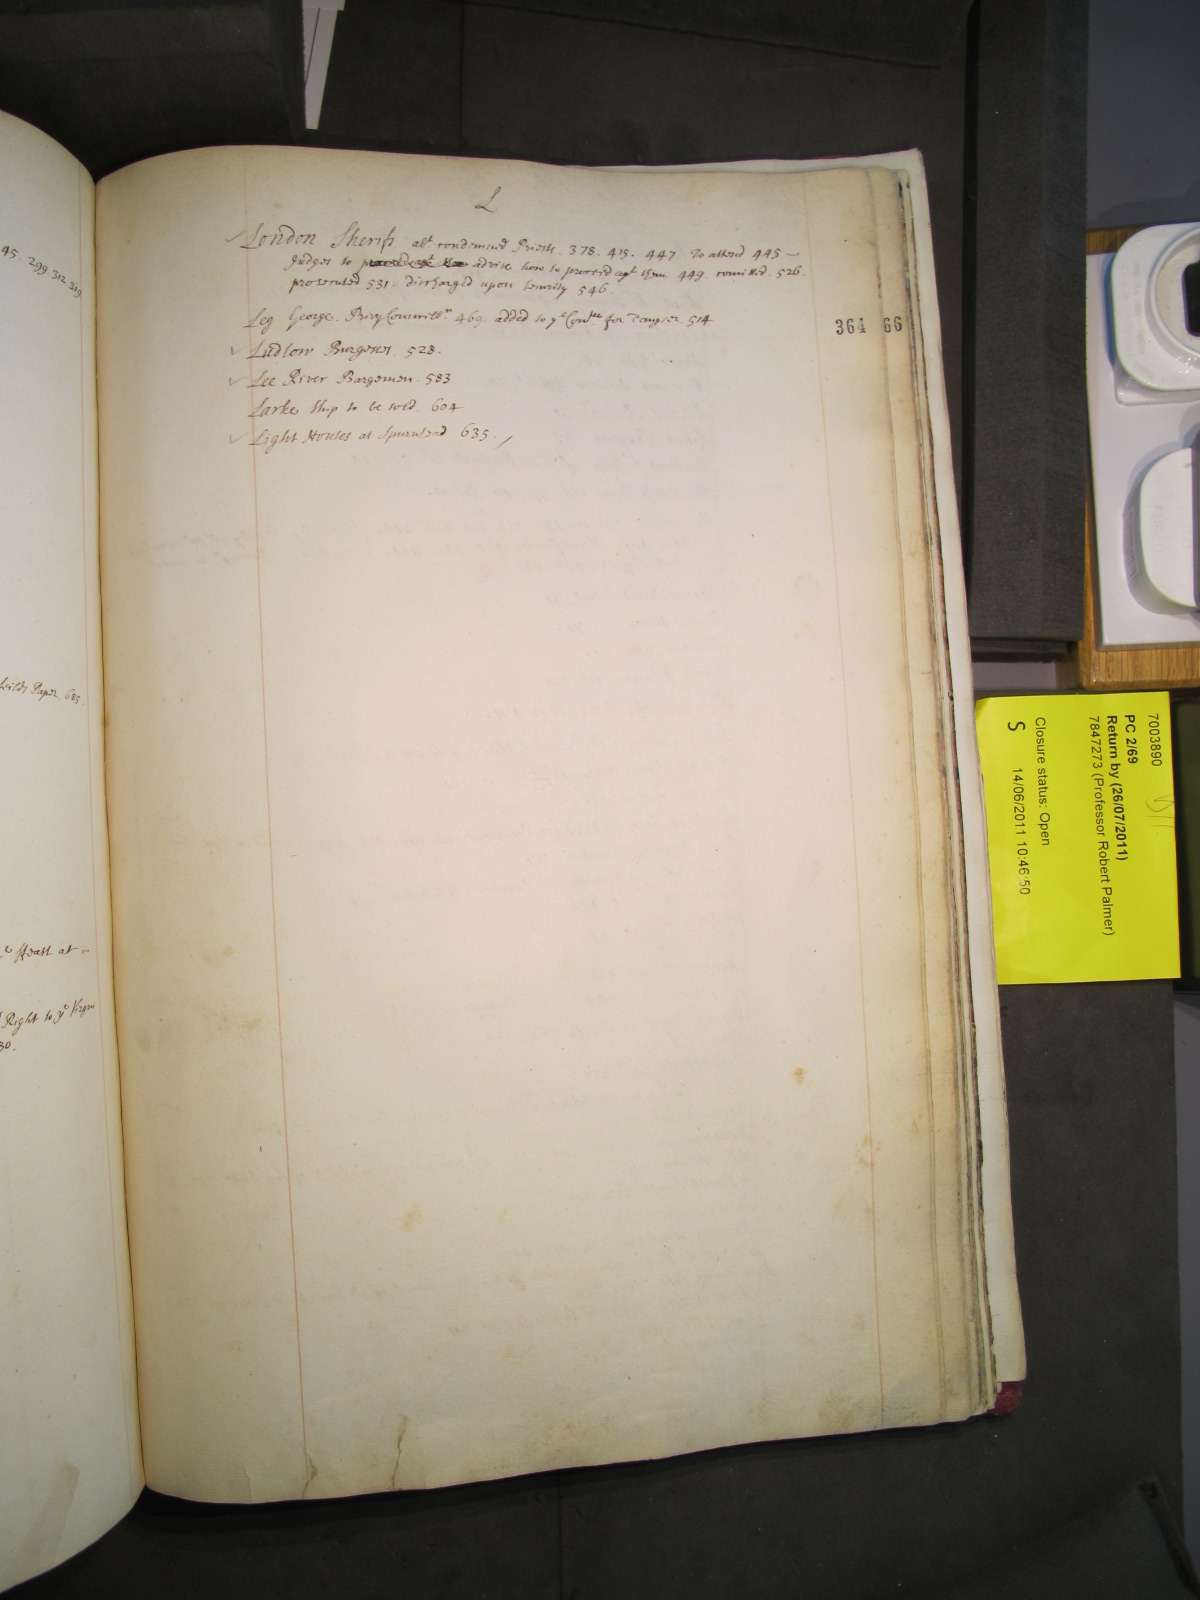 45 299 312 319
L
London Sheriffs abt condemned Priests. 378. 415. 447. To attend 445 —
Judges to advise how to proceed agt them. 449. comitted. 526.
prosecuted 531. discharged upon security 546.
Leg George. Privy Councillr. 469. added to ye Comtee for Tangier 514
Ludlow Burgesses. 528.
Lee River Bargemen. 583
Larke Ship to be sold. 604
Light Houses at Spurnhead 635.
364 66
Paper. 605.
at
Right to ye
30.
7003890
PC 2/69
Return by (26/07/2011)
7847273 (Professor Robert Palmer)
Closure status: Open
S 14/06/2011 10:46:50